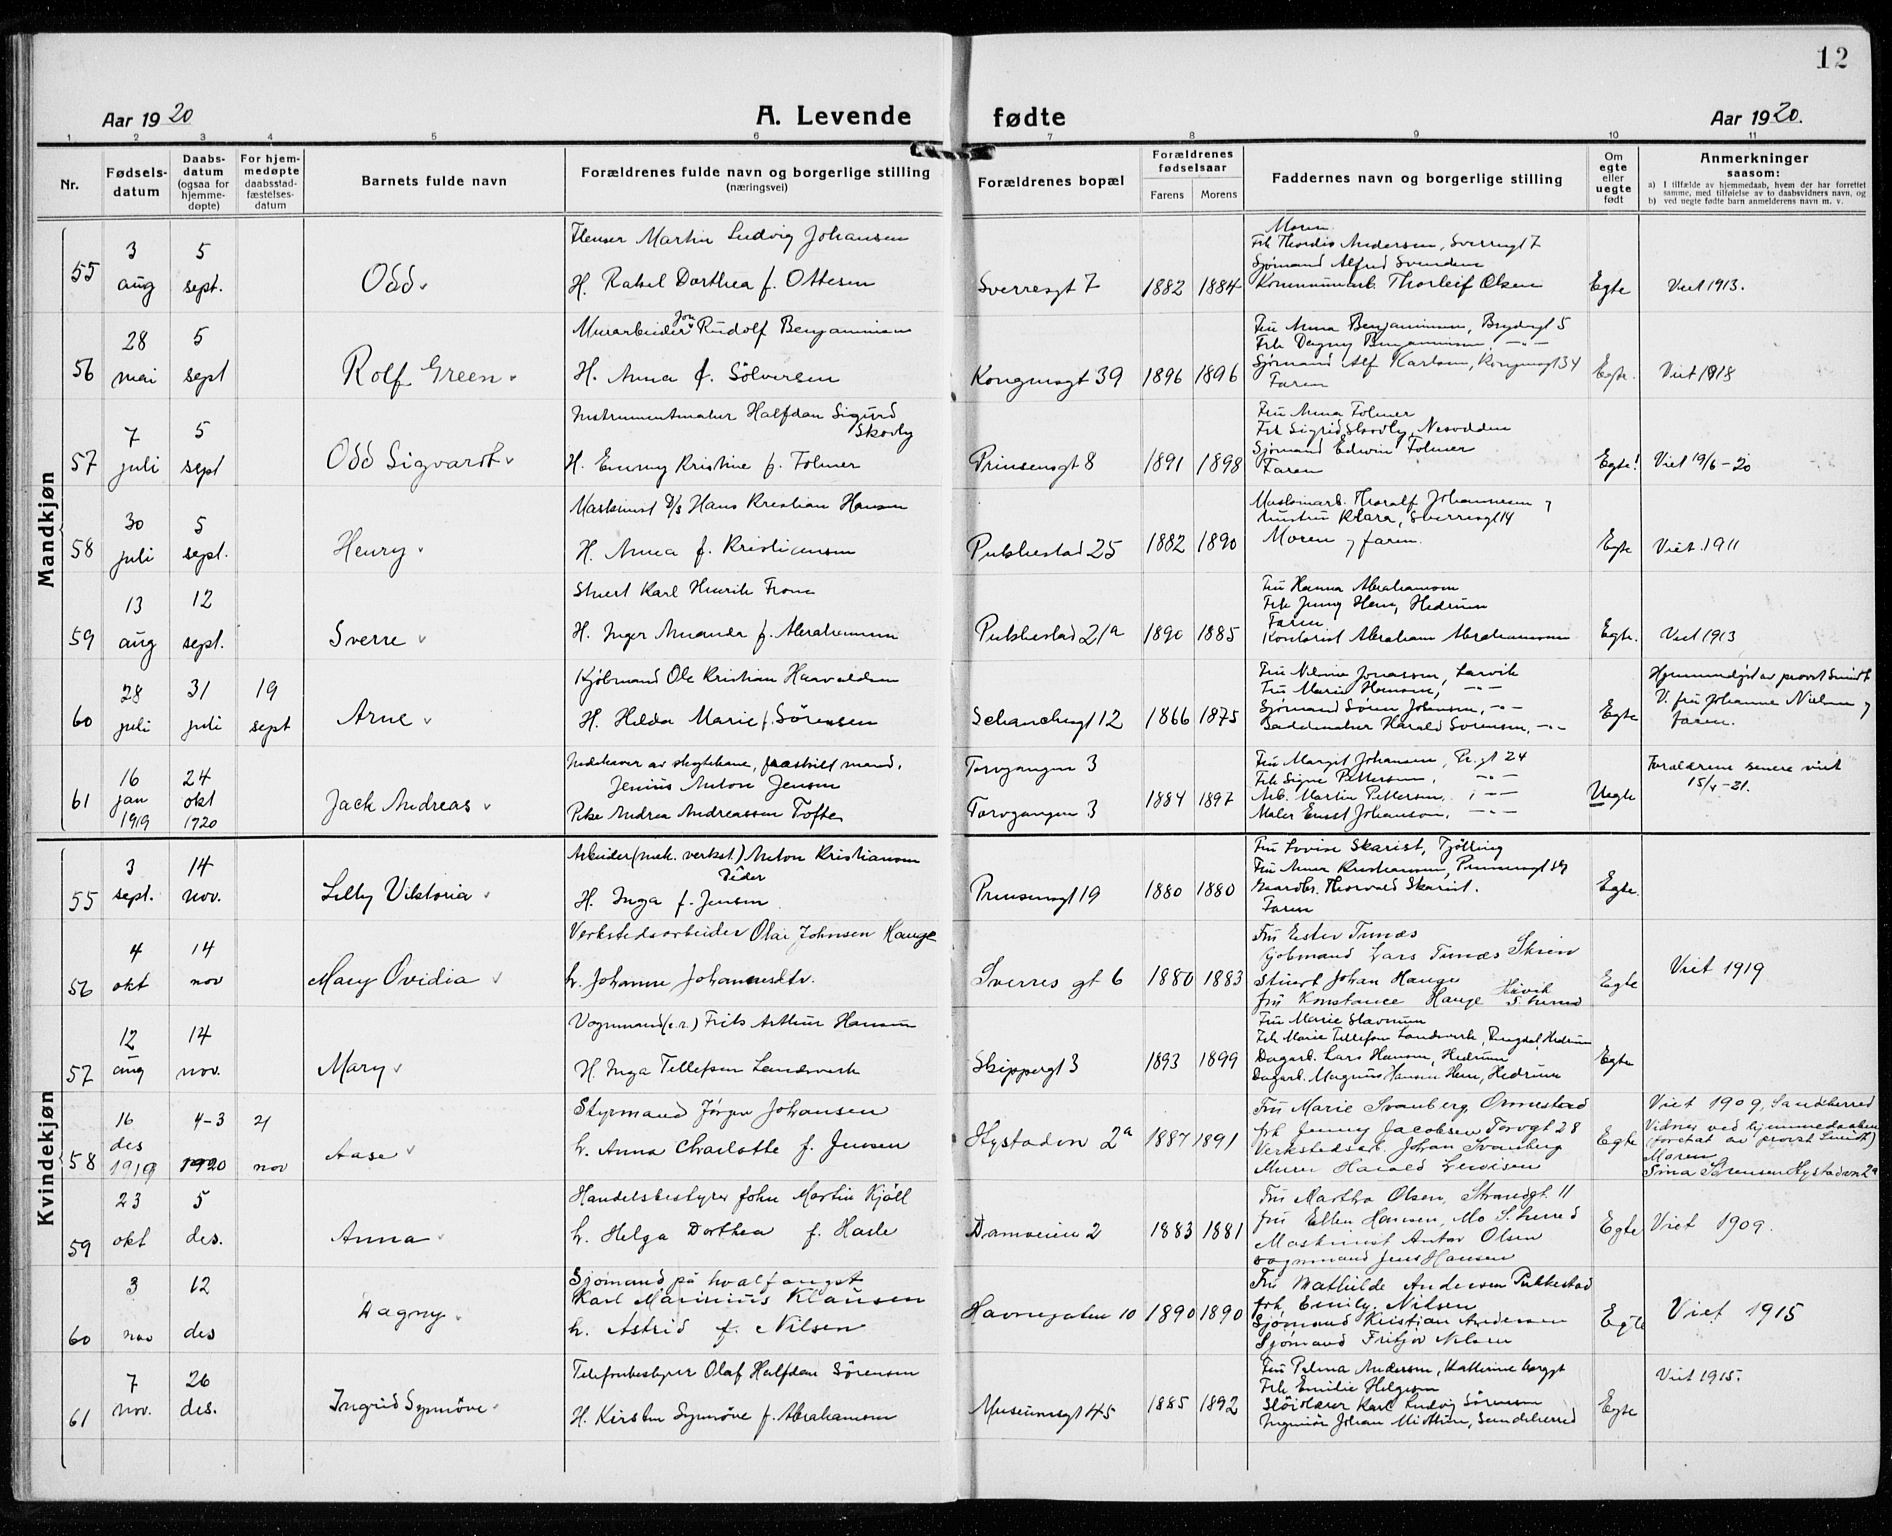 12
Aar 1920
A. Levende
fødte
Aar 1920.
1 2 3 4 5 6 7 8 9 10 11
Nr.
Fødsels-
datum
Daabs-
datum
(ogsaa for
hjemme-
døpte)
For hjem-
medøpte
daabsstad-
fæstelses-
datum
Barnets fulde navn
Forældrenes fulde navn og borgerlige stilling
(næringsvei)
Forældrenes bopæl
Forældrenes
fødselsaar
Farens Morens
Faddernes navn og borgerlige stilling
Om
egte
eller
uegte
født
Anmerkninger
saasom:
a) I tilfælde av hjemmedaab, hvem der har forrettet
samme, med tilføielse av to daabsvidners navn, og
b) ved uegte fødte barn anmelderens navn m. v.
Mandkjøn
55
3
aug
5
sept.
Odd
Flenser Martin Ludvig Johansen
H. Rakel Dorthea f. Ottesen
Sverresgt 7
1882 1884
Moren
Frk Thordis Andersen, Sverresgt 7
Sjømand Alfred Svendsen
Kommunearb. Thorleif Olsen
Egte
Viet 1913.
56
28
mai
5
sept
Rolf Green
Jon
Murarbeider Rudolf Benjaminsen
H. Anna f. Sölversen
Kongensgt 39
1896 1896
Fru Anna Benjaminsen, Brydesgt 5
Frk Dagny Benjaminsen, -"-
Sjømand Alf Karlsen, Kongensgt 34
Faren
Egte.
Viet 1918
57
7
juli
5
sept
Odd Sigvardt
Instrumentmaker Halfdan Sigurd
Skovly
H. Emmy Kristine f. Folmer
Prinsensgt 8
1891 1898
Fru Anna Folmer
Frk Sigrid Skovly, Nesodden
Sjømand Edwin Folmer
Faren
Egte!
Viet 19/6-20
58
30
juli
5
sept.
Henry
Maskinist D/S Hans Kristian Hansen
H. Anna f. Kristiansen
Pukkestad 25
1882 1890
Maskinarb. Thoralf Johannesen og
hustru Klara, Sverresgt 14
Moren og faren.
Egte
Viet 1911
59
13
aug
12
sept.
Sverre
Stuert Karl Henrik From
H. Inger Amanda f. Abrahamsen
Pukkestad 21a
1890 1885
Fru Hanna Abrahamsen
Frk Jenny Hem, Hedrum
Faren
Kontorist Abraham Abrahamsen
Egte.
Viet 1913
60
28
juli
31
juli
19
sept
Arne
Kjøbmand Ole Kristian Harvaldsen
H. Hilda Marie f. Sørensen
Schanchesgt 12
1866 1875
Jonassen, Larvik
Fru Marie Hansen, -"-
Sjømand Søren Johansen, -"-
Harald Sørensen, -"-
Egte
Hjemmedøpt av provst Smidt
V. fru Johanne Nielsen og
faren.
61
16
jan
1919
24
okt
1920
Jack Andreas
Indehaver av skytebane, fraskilt mand,
Jenius Anton Jensen
Pike Andrea Andreassen Tofte
Torvgangen 3
Torvgangen 3
1884 1897
Fru Margit Johansen, Pr.gt 24
Frk Signe Pettersen, -"-
Arb. Martin Pettersen, -"-
Maler Ernst Johansen, -"-
Uegte
Forældrene senere viet
15/5-21.
Kvindekjøn
55
3
sept.
14
nov.
Lilly Viktoria
Arbeider (mek. verkst.) Anton Kristiansen
H. Inga f. Jensen
Prinsensgt 19
1880 1880
Fru Lovise Skarist, Tjølling
Fru Anna Kristiansen, Prinsensgt 19
Gaardbr. Thorvald Skarist.
Faren
Egte
56
4
okt
14
nov
Mary Ovidia
Verkstedsarbeider Olai Johnsen Hauge
h. Johanne Johannesdtr.
Sverres gt 6
1880 1883
Fru Ester Tunæs
Kjøbmand Lars Tunæs Skien
Stuert Johan Hauge
fru Konstance Hauge
Egte
Viet 1919
57
12
aug
14
nov.
Mary
Vognmand (e.r.) Frits Arthur Hansen
H. Inga Tellefsen Landsverk
Skippergt 3
1893 1899
Fru Marie Stavnum
Frk Marie Tellefsen Landsverk, Ringdal, Hedrum
Dagarb. Lars Hansen, Hedrum
Dagarb. Magnus Hansen Hem, Hedrum
Egte
58
16
des
1919
4-3
1920
21
nov
Aase
Styrmand Jörgen Johansen
h. Anna Charlotte f. Jensen
Hystadvn 2a
1887 1891
Fru Marie Svanberg, Ormestad
frk Jenny Jacobsen Torvgt 28
Verkstedsarb. Johan Svanberg
Murer Harald Lewisen
Egte
Viet 1909, Sandeherred
Vidner ved hjemmedaaben
(foretat av provst Smidt)
Moren
Sina Sørensen Hystadvn 2a
59
23
okt
5
des.
Anna
Handelsbestyrer John Martin Kjöll
h. Helga Dorthea f. Hasle
Damveien 2
1883 1881
Fru Martha Olsen, Strandgt 11
fru Ellen Hansen, Mo S.herred
Maskinist Anton Olsen
vognmand Jens Hansen
Egte
Viet 1909.
60
3
nov
12
des
Dagny
Sjømand på hvalfangst
Karl Marinius Klausen
h. Astrid f. Nilsen
Havnegaten 10
1890 1890
Fru Mathilde Andersen Pukkestad
frk Emily Nilsen
Sjømand Kristian Andersen
Sjømand Fritjov Nilsen
Egte
Viet 1915
61
7
nov.
26
des.
Ingrid Synnøve
Telefonbestyrer Olaf Halfdan Sörensen
H. Kirsten Synnöve f. Abrahamsen
Museumsgt 45
1885 1892
Fru Palma Andersen,
Frk Emilie Helgesen
Sløidlærer Karl Ludvig Sørensen
Ingeniør Johan Mörtsen, Sandeherred
Egte
Viet 1915.